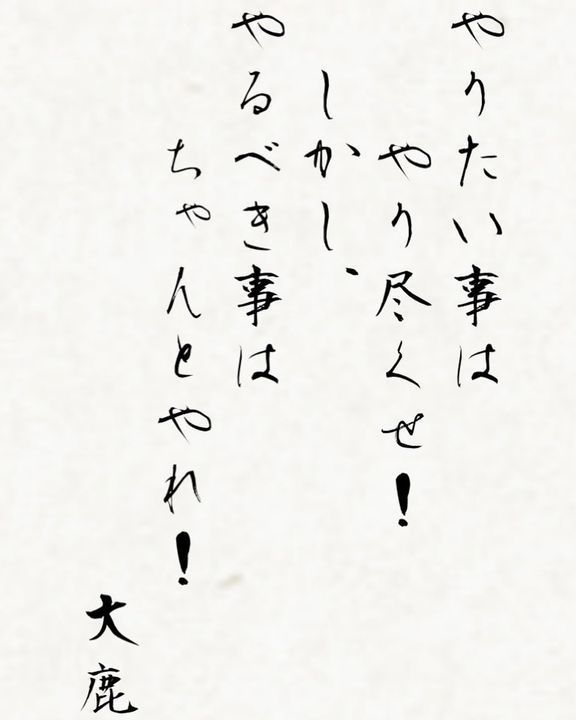 やりたい事は
やり尽くせ!
しかし、
やるべき事は
ちゃんとやれ!
大鹿